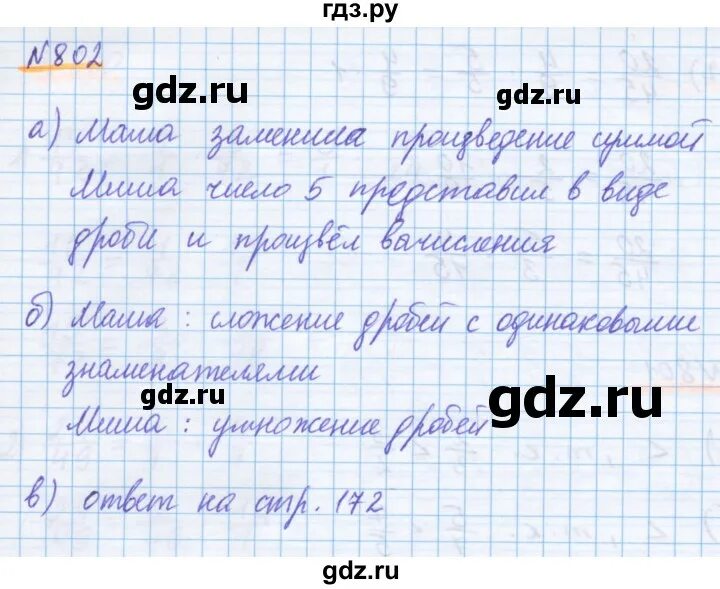 гдз.ру
№802
gdz.ru
gdz.ru
а) Маша заменила произведение суммой
Миша число 5 представил в виде
дроби и произвёл вачисления
gdz.ru
б) Маша : сложение дробей с одинаковыми
знаменателями
gdz.ru
gdz.ru
Миша : умножение дробей
в) ответ на стр. 172
gdz.ru